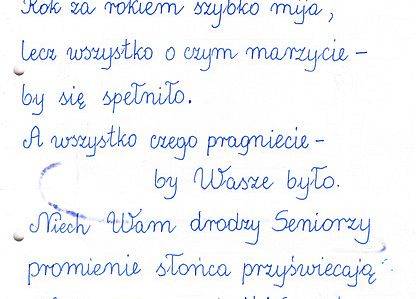 Rok za rokiem szybko mija,
lecz wszystko o czym marzycie -
by się spełniło.
A wszystko czego pragniecie -
by Wasze było.
Niech Wam drodzy Seniorzy
promienie słońca przyświecają